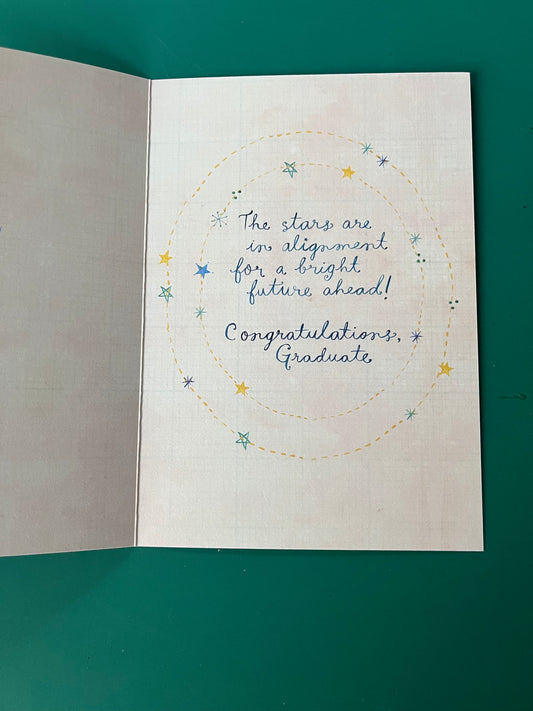 The stars are
in alignment
for a bright
future ahead!
Congratulations,
Graduate